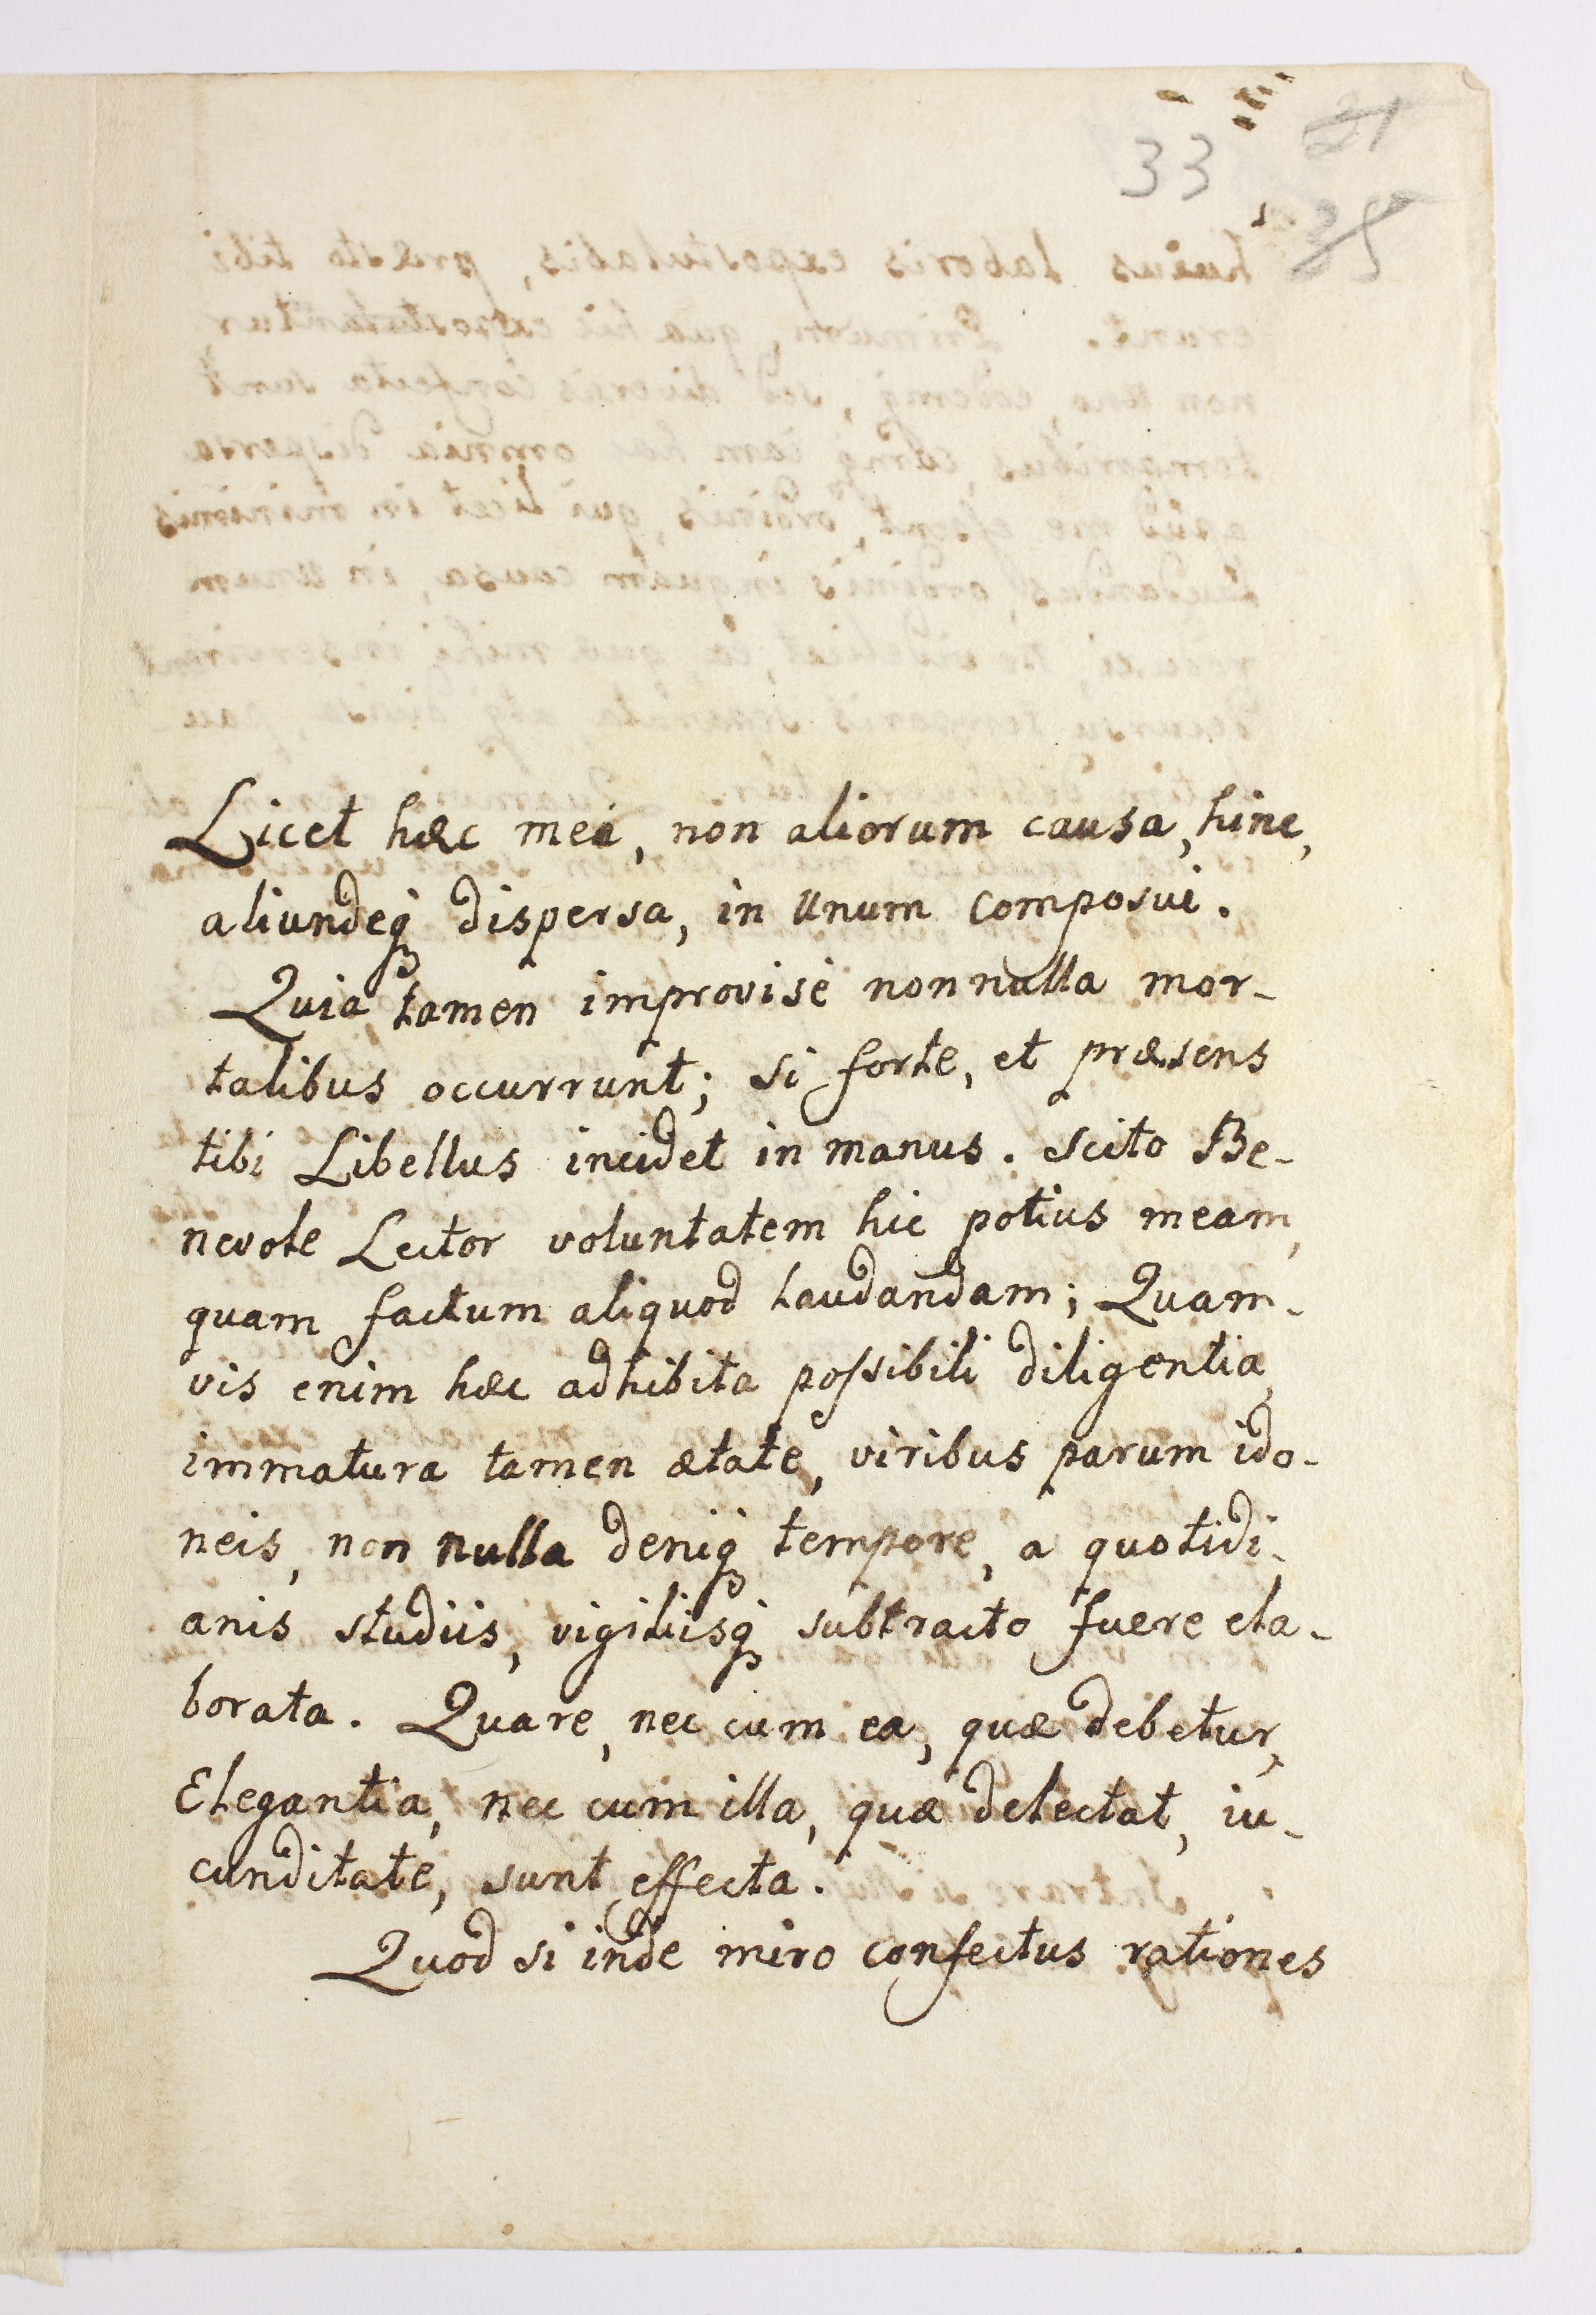 33
21
35
Licet hæc meâ, non aliorum causa, hinc,
aliundeq3 dispersa, in unum composui.
Quia tamen improvisè nonnulla mor-
talibus occurrunt; si forte, et præsens
tibi Libellus incidet in manus. Scito Be-
nevole Lector voluntatem hic potius meam,
quam factum aliquod laudandam; Quam-
vis enim hæc adhibita poſsibili diligentia,
immatura tamen ætate, viribus parum ido-
neis, non nulla deniq3 tempore, a quotidi-
anis studiis, vigiliisq3 subtracto fuere ela-
borata. Quare, nec cum ea, quæ debetur,
Elegantia, nec cum illa, quæ delectat, iu-
cunditate, sunt effecta.
Quod si inde miro confectus rationes